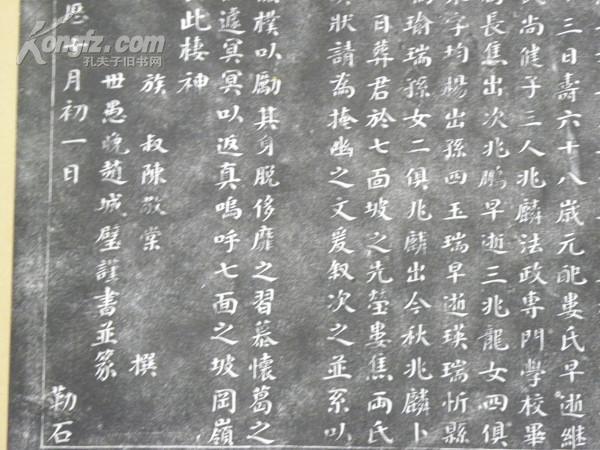 三日壽六十八歲元配婁氏早逝継
氏尚健子三人兆麟法政專門學校畢
長焦出次兆鵬早逝三兆龍女四俱
字均楊出孫四玉瑞早逝瑛瑞忻縣
瑜瑞孫女二俱兆麟出今秋兆麟卜
日葬君於七面坡之先塋婁焦兩氏
狀請為掩幽之文爰叙次之並系以
樸以勵其身脫侈靡之習慕懷葛之
遽冥冥以返真嗚呼七面之坡岡嶺
此棲神
族叔陳敬棠撰
世愚晚趙城璧謹書並篆
月初一日 勒石
Kongfz.com
孔夫子旧书网